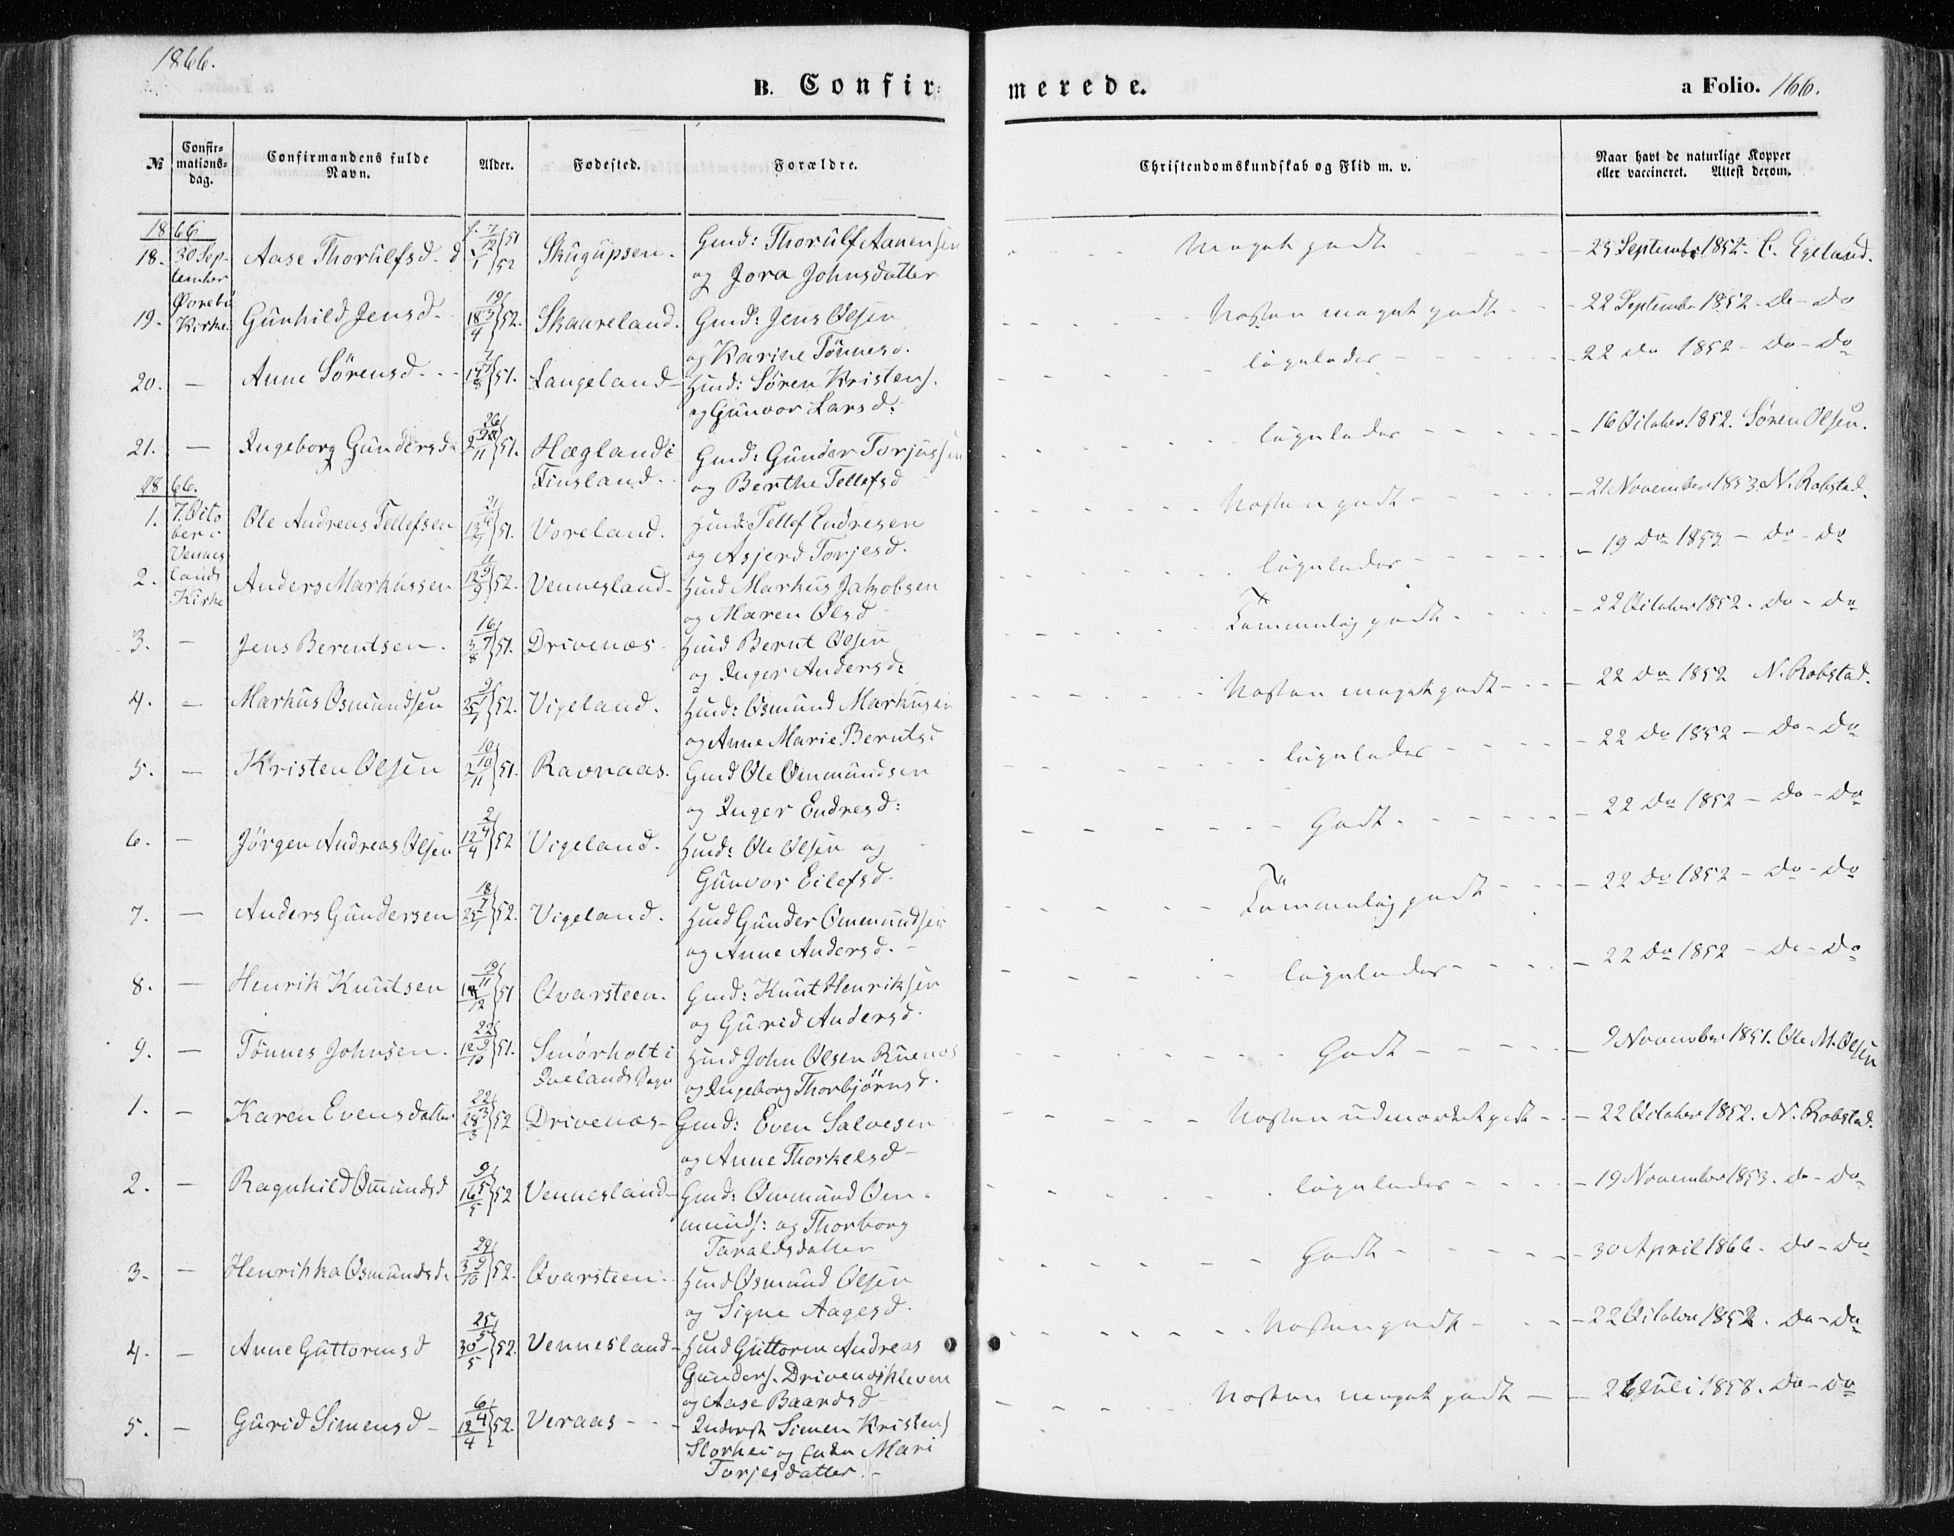 1866.
B. Confirmerede.
a Folio. 166.
№
Confirmations-dag.
Confirmandens fulde Navn.
Alder.
Fødested.
Forældre.
Christendomskundskab og Flid m. v.
Naar havt de naturlige Kopper eller vaccineret. Attest derom.
1866
18. 30 September Øvrebø Kirke. Aase Thorulfsd. Gmd: Thorulf Aanensen og Jora Johnsdatter Meget godt 25 September 1852. C. Egeland.
19. Gunhild Jensd. 52. Skaareland. Gmd: Jens Olsen og Karine Tønnesd. Næsten meget godt 22 September 1852 - Do - Do
20. — Anne Sørensd. 51. Langeland Hmd: Søren Kristens. og Gunvor Larsd: ligeledes 22 Do 1852 - Do - Do
21. — Ingeborg Gundersd 51. Hægland i Finsland. Gmd: Gunder Torjussen og Berthe Tellefsd ligeledes 16 October 1852. Søren Olsen.
1866.
1. 7. October i Vennesland Kirke Ole Andreas Tellefsen 51. Voreland. Hmd: Tellef Endresen og Asjerd Torjesd. Næsten godt 21 November 1853. N. Robstad.
2. Anders Markussen 52. Vennesland Hmd Markus Jakobsen og Maren Olsd ligeledes 19 Do 1853 - Do - Do
3. — Jens Berentsen. 16/8 51. Drivenæs. Hmd Bernt Olsen og Inger Andersd: Temmelig godt 22 October 1852. Do - Do
4. — Markus Osmundsen 52. Vigeland. Hmd: Osmund Markusen og Anne Marie Berntsd Næsten meget godt 22 Do 1852 N. Robstad.
5. — Kristen Olsen 51. Ravnaas. Gmd Ole Ommundsen og Inger Endresd: ligeledes 22 Do 1852 - Do - Do
6. — Jörgen Andreas Olsen 52 Vigeland. Hmd: Ole Olsen og Gunvor Eilefsd. Godt 22 Do 1852 - Do - Do
7. — Anders Gundersen 52. Vigeland. Hmd Gunder Ommundsen og Anne Andersd. Temmelig godt 22 Do 1852 - Do - Do
8. — Henrik Knutsen 51 Qvarsteen. Gmd: Knut Henriksen og Gurid Andersd. ligeledes 22 Do 1852 - Do - Do
9. — Tönnes Johnsen. 51. Smörholt i Ivelands Sogn Hmd John Olsen og Ingeborg Thorbjörnsd. Godt 9 November 1851. Ole M. Olsen
1. — Karen Evensdatter 52 Drivenæs Gmd: Even Salvesen og Anne Thorkelsd Næsten udmærket godt 22 October 1852. N. Robstad.
2. — Ragnhild Omundsd 52 Vennesland Gmd: Ommund Ommunds: og Thorborg Taraldsdatter ligeledes 19 November 1853. Do - Do
3. — Henrikka Osmundsd. 52. Qvarsteen. Hmd Osmund Olsen og Signe Aagesd. Godt 30 April 1866. Do - Do
4. — Anne Guttormsd 52. Vennesland Hmd Guttorm Andreas Gunders. Drivenæskleven og Aase Baardsd Næsten godt 22 October 1852. Do - Do
5. — Gurid Simensd 52. Veraas Inderst Simen Kristens Storhei og Mari Torjesdatter. Næsten meget godt 26 Juli 1858. Do - Do